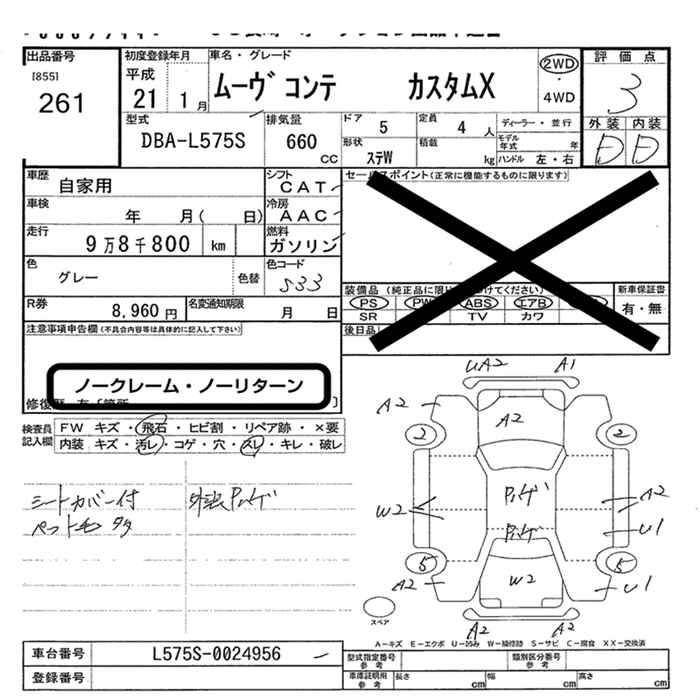 出品番号
[855]
261
初度登録年月
平成
21 1月
車名・グレード
ムーヴ コンテ カスタムX
2WD
・
4WD
評価点
3
外装 内装
D D
型式
DBA-L575S
排気量
660
CC
ドア
5
定員
4 人
ディーラー・並行
モデル年式 年
形状
ステW
積載
kg
ハンドル 左・右
車歴
自家用
シフト
CAT
セールスポイント(正常に機能するものに限ります)
車検
年 月( 日)
冷房
AAC
走行
9万8千800 km
燃料
ガソリン
色
グレー
色替
色コード
S33
装備品(純正品に限り
けてください)
PS PW ABS エアB
SR TV カワ
新車保証書
有・無
R券
8,960円
名変通知期限
月 日
後日品
注意事項申告欄(不具合内容等は具体的に記入して下さい)
ノークレーム・ノーリターン
検査員
記入欄
FW キズ・飛石・ヒビ割・リペア跡・×要
内装 キズ・汚レ・コゲ・穴・スレ・キレ・破レ
シートカバー付
ペット毛 多
UA2 A1
A2 A2
2 2
W2
A2
U1
5 5
A2 W2 U1
A2 A2
スペア
A-キズ E-エクボ U-凹み W-補修跡 S-サビ C-腐食 XX-交換済
車台番号
L575S-0024956
登録番号
型式指定番号
参考
類別区分番号
参考
車庫証明用
参考
長さ cm
幅 cm
高さ cm